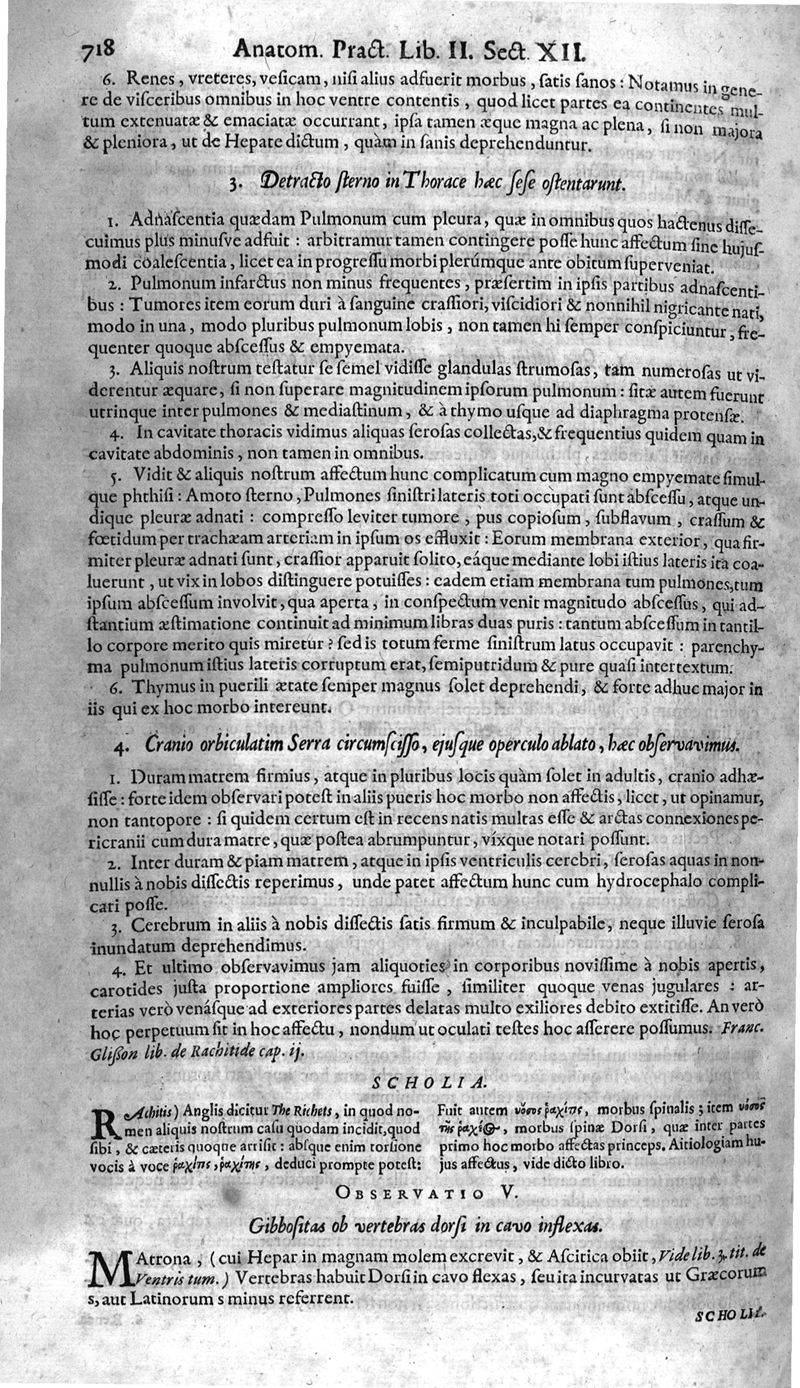 718 Anatom. Pract. Lib. II. Sect. XII.
6. Renes, vreteres, veſicam, niſi alius adfuerit morbus, ſatis ſanos: Notamus in gene-
re de viſceribus omnibus in hoc ventre contentis, quod licet partes ea continentes mul-
tum extenuatæ & emaciatæ occurrant, ipſa tamen æque magna ac plena, ſi non majora
& pleniora, ut de Hepate dictum, quàm in ſanis deprehenduntur.
3. Detracto ſterno in Thorace hæc ſeſe oſtentarunt.
1. Adnaſcentia quædam Pulmonum cum pleura, quæ in omnibus quos hactenus diſſe-
cuimus plus minuſve adfuit: arbitramur tamen contingere poſſe hunc affectum ſine hujuſ-
modi coaleſcentia, licet ea in progreſſu morbi plerúmque ante obitum ſuperveniat.
2. Pulmonum infarctus non minus frequentes, præſertim in ipſis partibus adnaſcenti-
bus: Tumores item eorum duri à ſanguine craſſiori, viſcidiori & nonnihil nigricante nati,
modo in una, modo pluribus pulmonum lobis, non tamen hi ſemper conſpiciuntur, fre-
quenter quoque abſceſſus & empyemata.
3. Aliquis noſtrum teſtatur ſe ſemel vidiſſe glandulas ſtrumoſas, tam numeroſas ut vi-
derentur æquare, ſi non ſuperare magnitudinem ipſorum pulmonum: ſitæ autem fuerunt
utrinque inter pulmones & mediaſtinum, & à thymo uſque ad diaphragma protenſæ.
4. In cavitate thoracis vidimus aliquas ſeroſas collectas, & frequentius quidem quam in
cavitate abdominis, non tamen in omnibus.
5. Vidit & aliquis noſtrum affectum hunc complicatum cum magno empyemate ſimul-
que phthiſi: Amoto ſterno, Pulmones ſiniſtri lateris toti occupati ſunt abſceſſu, atque un-
dique pleuræ adnati: compreſſo leviter tumore, pus copioſum, ſubflavum, craſſum &
fœtidum per trachæam arteriam in ipſum os effluxit: Eorum membrana exterior, qua fir-
miter pleuræ adnati ſunt, craſſior apparuit ſolito, eáque mediante lobi iſtius lateris ita coa-
luerunt, ut vix in lobos diſtinguere potuiſſes: eadem etiam membrana tum pulmones, tum
ipſum abſceſſum involvit, qua aperta, in conſpectum venit magnitudo abſceſſus, qui ad-
ſtantium æſtimatione continuit ad minimum libras duas puris: tantum abſceſſum in tantil-
lo corpore merito quis miretur? ſed is totum ferme ſiniſtrum latus occupavit: parenchy-
ma pulmonum iſtius lateris corruptum erat, ſemiputridum & pure quaſi intertextum.
6. Thymus in puerili ætate ſemper magnus ſolet deprehendi, & forte adhuc major in
iis qui ex hoc morbo intereunt.
4. Cranio orbiculatim Serra circumſciſſo, ejuſque operculo ablato, hæc obſervavimus.
1. Duram matrem firmius, atque in pluribus locis quàm ſolet in adultis, cranio adhæ-
ſiſſe: forte idem obſervari poteſt in aliis pueris hoc morbo non affectis, licet, ut opinamur,
non tantopore: ſi quidem certum eſt in recens natis multas eſſe & arctas connexiones pe-
ricranii cum dura matre, quæ poſtea abrumpuntur, víxque notari poſſunt.
2. Inter duram & piam matrem, atque in ipſis ventriculis cerebri, ſeroſas aquas in non-
nullis à nobis diſſectis reperimus, unde patet affectum hunc cum hydrocephalo compli-
cari poſſe.
3. Cerebrum in aliis à nobis diſſectis ſatis firmum & inculpabile, neque illuvie ſeroſa
inundatum deprehendimus.
4. Et ultimo obſervavimus jam aliquoties in corporibus noviſſime à nobis apertis,
carotides juſta proportione ampliores fuiſſe, ſimiliter quoque venas jugulares: ar-
terias verò venáſque ad exteriores partes delatas multo exiliores debito extitiſſe. An verò
hoc perpetuum ſit in hoc affectu, nondum ut oculati teſtes hoc aſſerere poſſumus. Franc.
Gliſſon lib. de Rachitide cap. ij.
SCHOLIA.
RAchitis) Anglis dicitur The Richets, in quod no-
men aliquis noſtrum caſu quodam incidit, quod
ſibi, & cæteris quoqne arriſit: abſque enim torſione
vocis à voce ῥαχίτις, ῥαχίτης, deduci prompte poteſt:
Fuit autem νόσος ῥαχίτις, morbus ſpinalis; item νόσος
τῆς ῥάχιος, morbus ſpinæ Dorſi, quæ inter partes
primo hoc morbo affectas princeps. Aitiologiam hu-
jus affectus, vide dicto libro.
OBSERVATIO V.
Gibboſitas ob vertebras dorſi in cavo inflexas.
MAtrona, (cui Hepar in magnam molem excrevit, & Aſcitica obiit, Vide lib. 3. tit. de
Ventris tum.) Vertebras habuit Dorſi in cavo flexas, ſeu ita incurvatas ut Græcorum
s, aut Latinorum s minus referrent.
SCHOLIA.